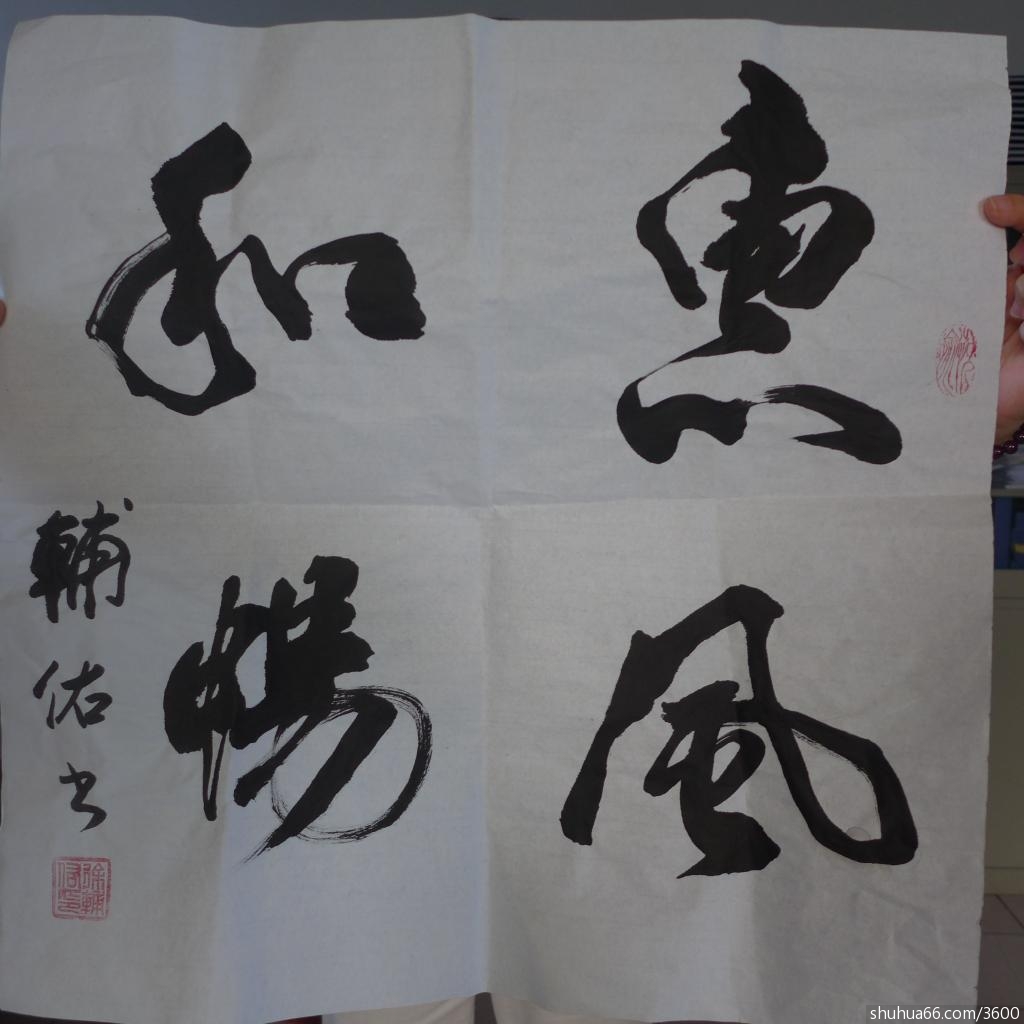 惠風
和暢
輔佑书
shuhua66.com/3600